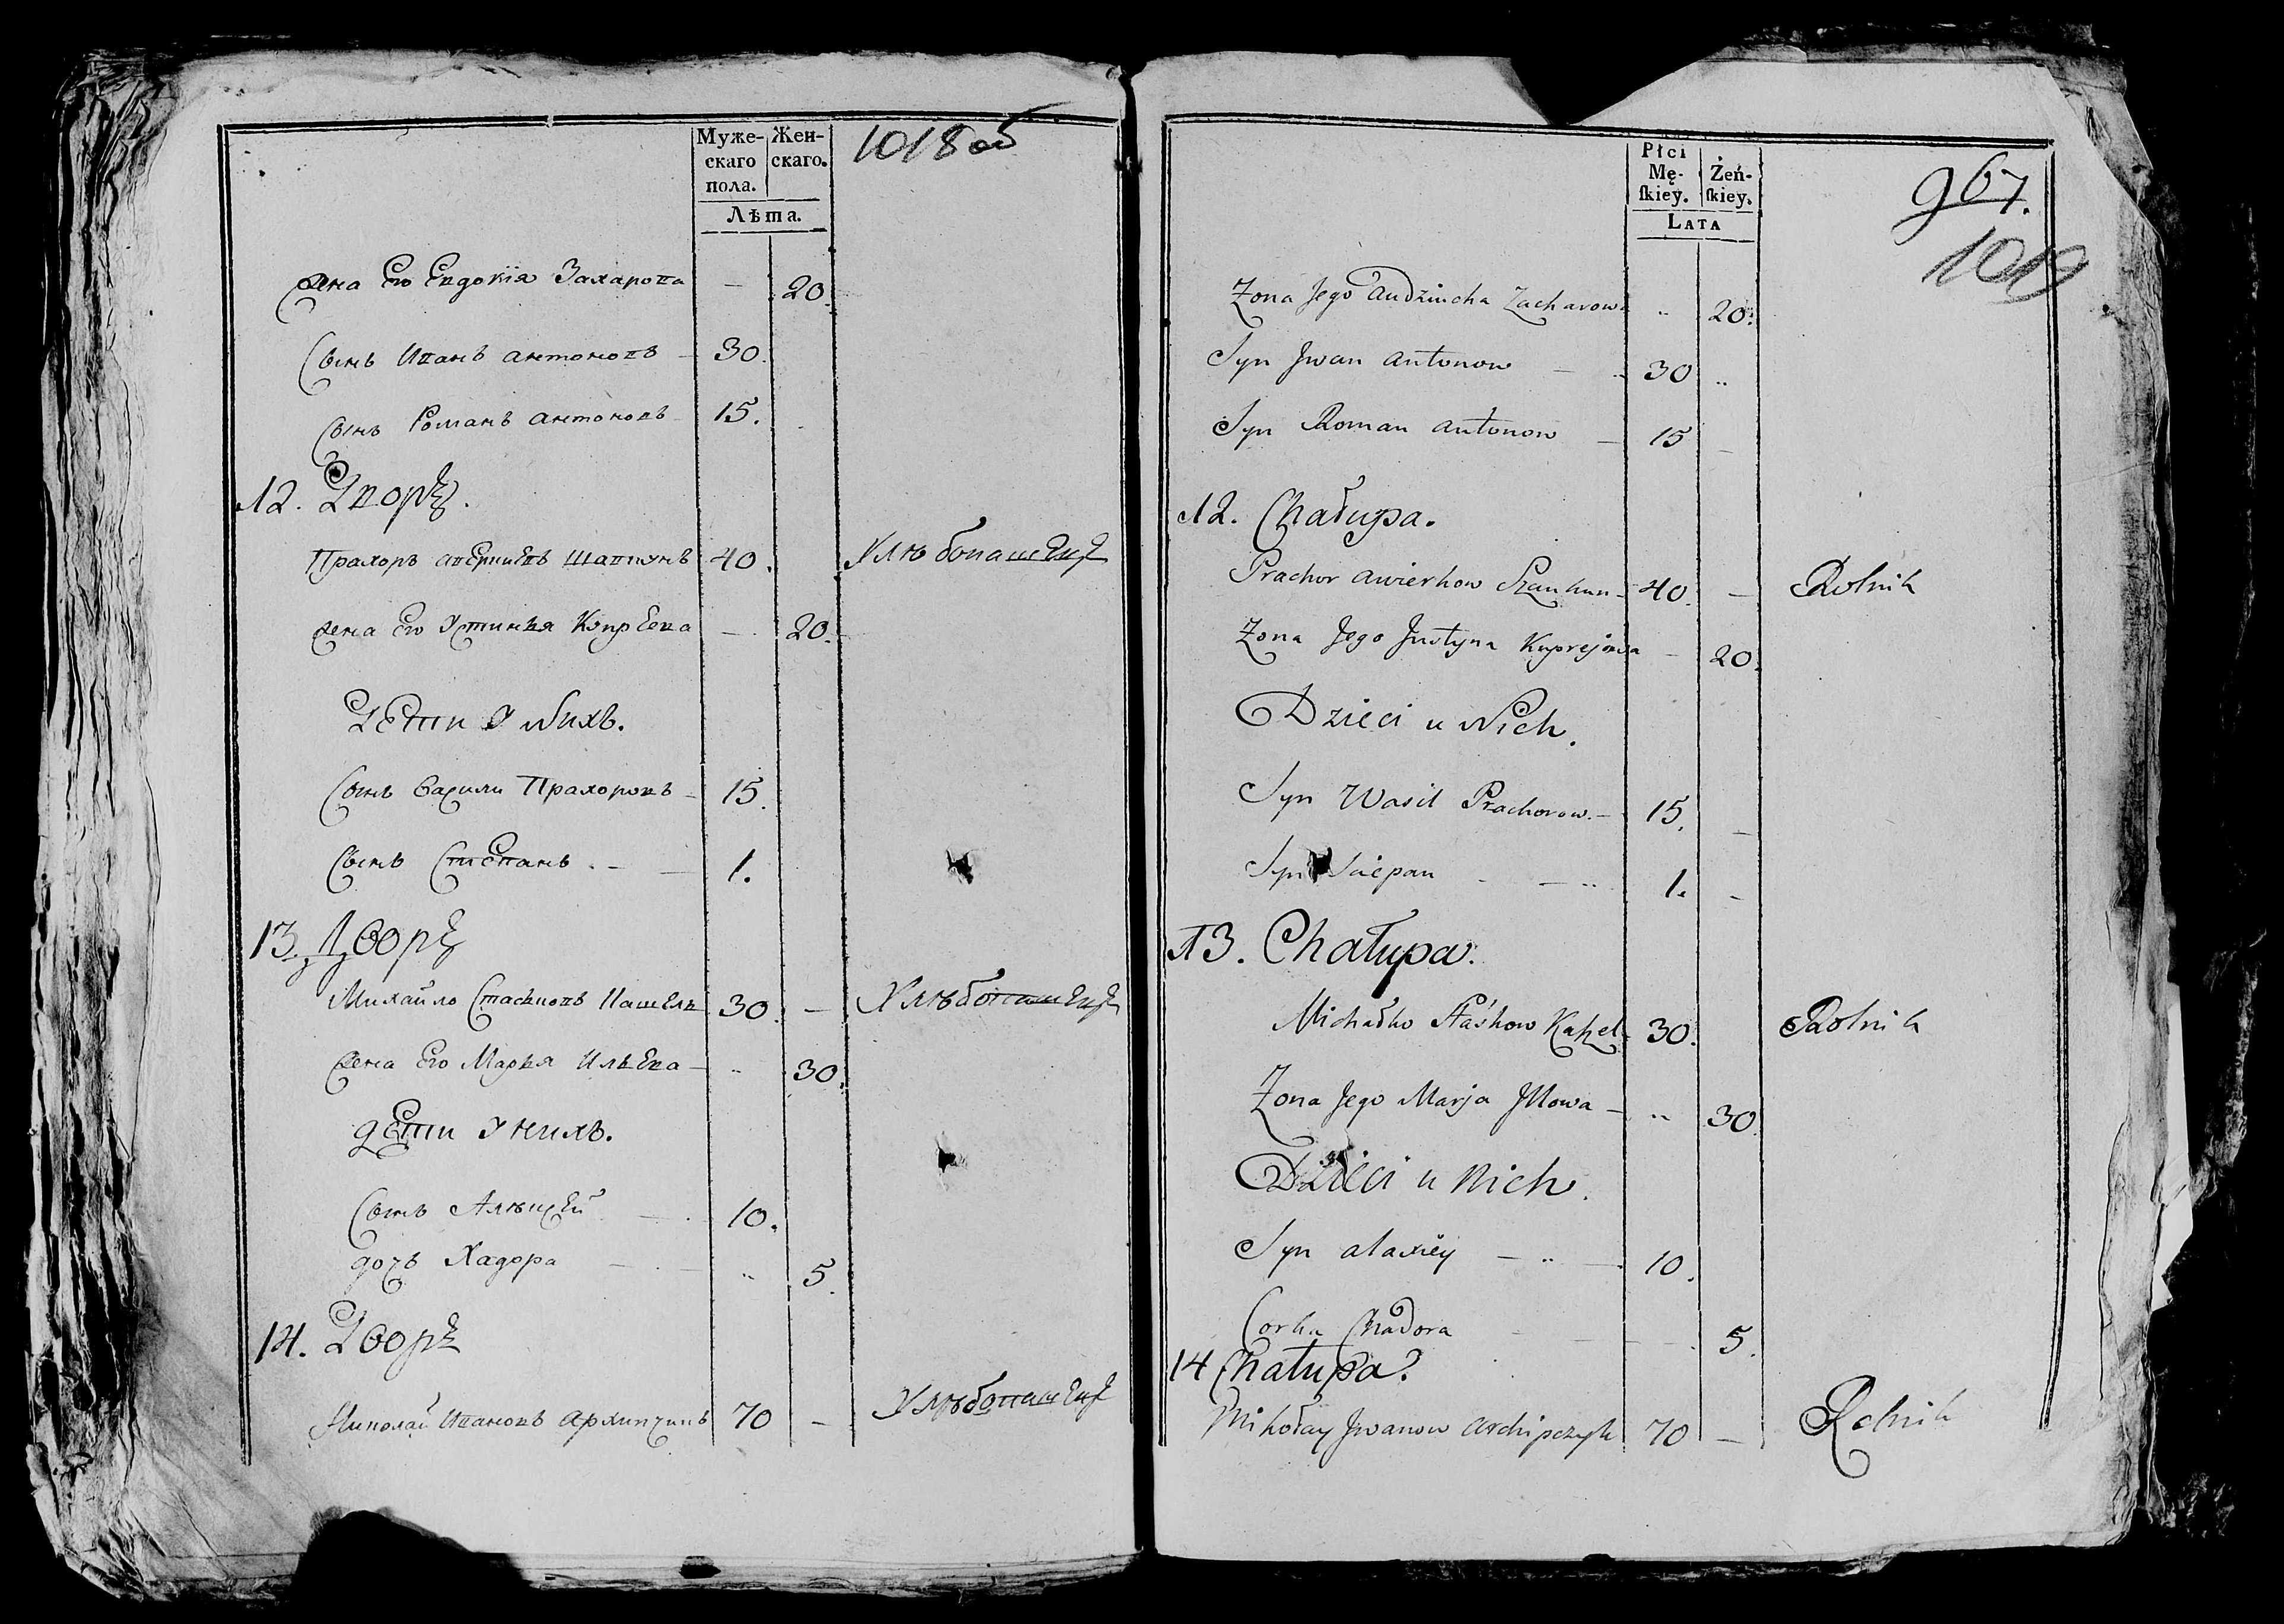 Муже-
скаго
пола.
Жен-
скаго.
Лѣта.
1018 об
Жена Его Евдокія Захарова — 20.
Сынъ Иванъ Антоновъ — 30.
Сынъ Романъ Антоновъ 15.
12. Дворъ.
Прахоръ Аверкиевъ 40. Хлѣбопашецъ
Жена Его Устинья Купрѣева — 20.
Дети у Нихъ.
Сынъ Васили Прахоровъ — 15.
Сынъ Степанъ. — 1.
13. Дворъ
Михайло Стаськовъ 30. — Хлѣбопашецъ
Жена Его Марья Ильева — 30.
Дети у нихъ.
Сынъ Алѣксей — 10.
дочь Хадора — 5.
14. Дворъ
Николай Ивановъ Архипчикъ 70 — Хлѣбопашецъ
Płci
Mę-
ſkiey.
Żeń-
ſkiey.
LATA
967.
1019
Żona Jego Audziucha Zacharowa 20.
Syn Jwan Antonow — 30
Syn Roman Antonow — 15
12. Chałupa.
Prachor Awierkow Szaukun — 40. — Rolnik
Żona Jego Justyna Kuprejowa — 20.
Dzieci u Nich.
Syn Wasil Prachorow. — 15. —
Syn Sciepan — 1. —
13. Chałupa.
Michałko Staśkow 30. Rolnik
Żona Jego Marja Jllowa — 30.
Dzieci u Nich.
Syn Alaxiey — 10.
Corka Chadora — 5.
14 Chałupa.
Mikołay Jwanow Archipczyk 70 — Rolnik